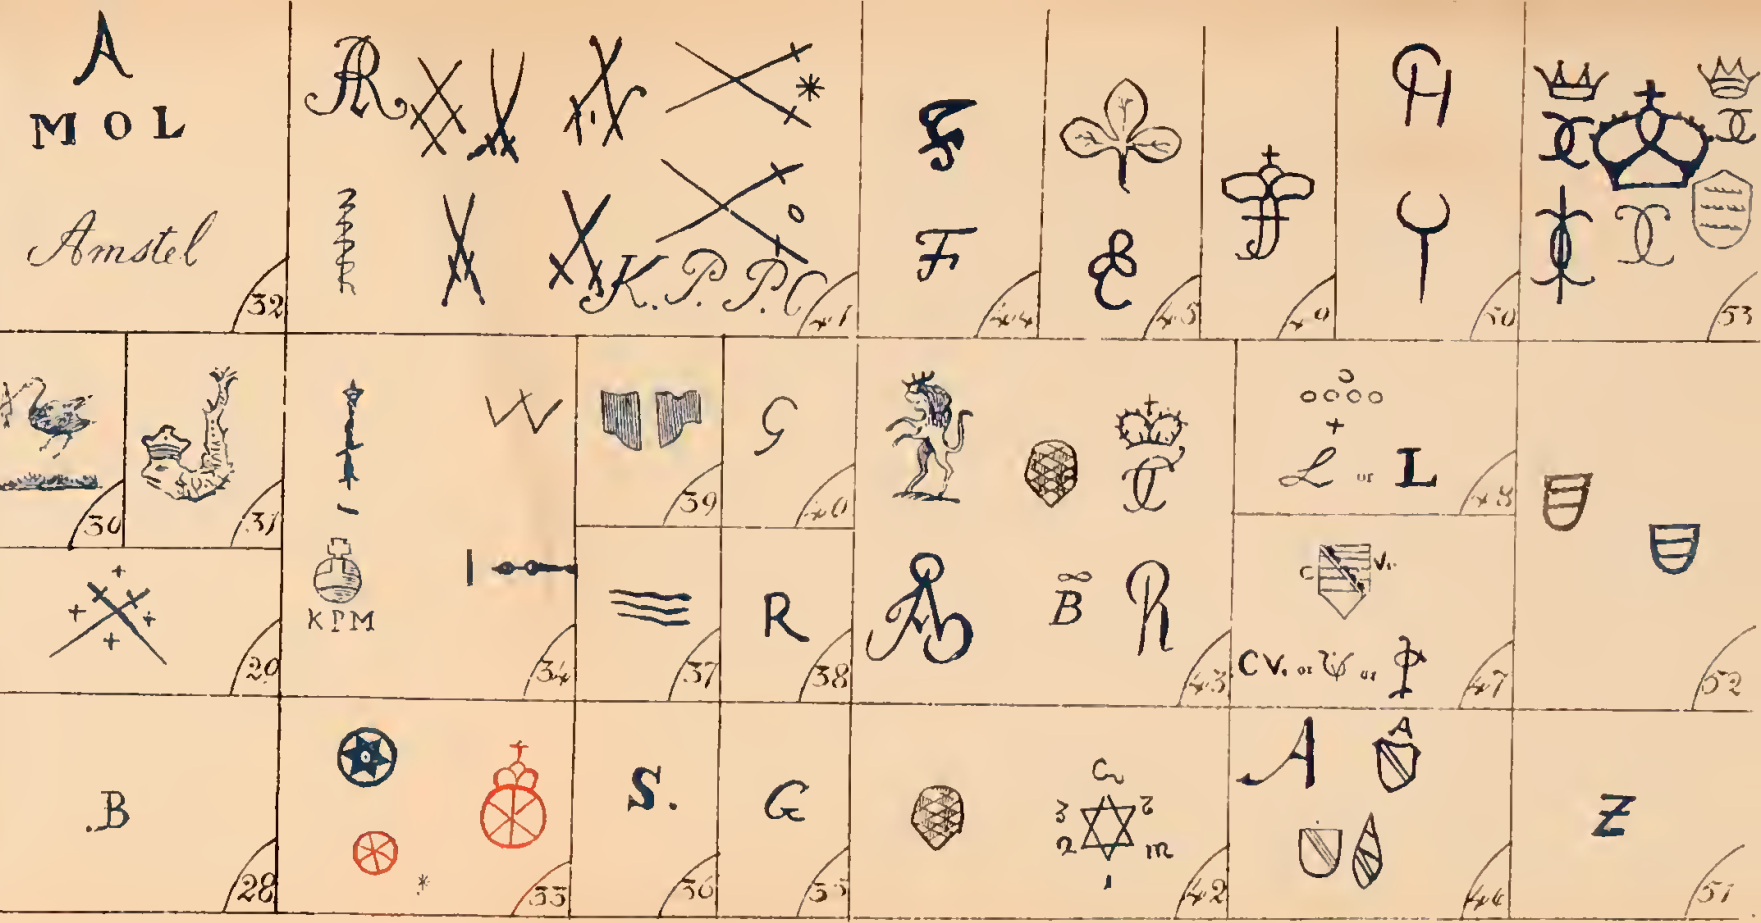 A
M O L
Amstel
32
AR
K. P. P. C
41
F
F
44
E
45
49
CH
50
53
30
31
W
KPM
34
39
G
40
37
R
38
B
R
43
L or L
48
C V.
CV. or
or
47
52
29
.B
28
33
S.
36
G
35
G
3
2
m
42
A
A
46
Z
51